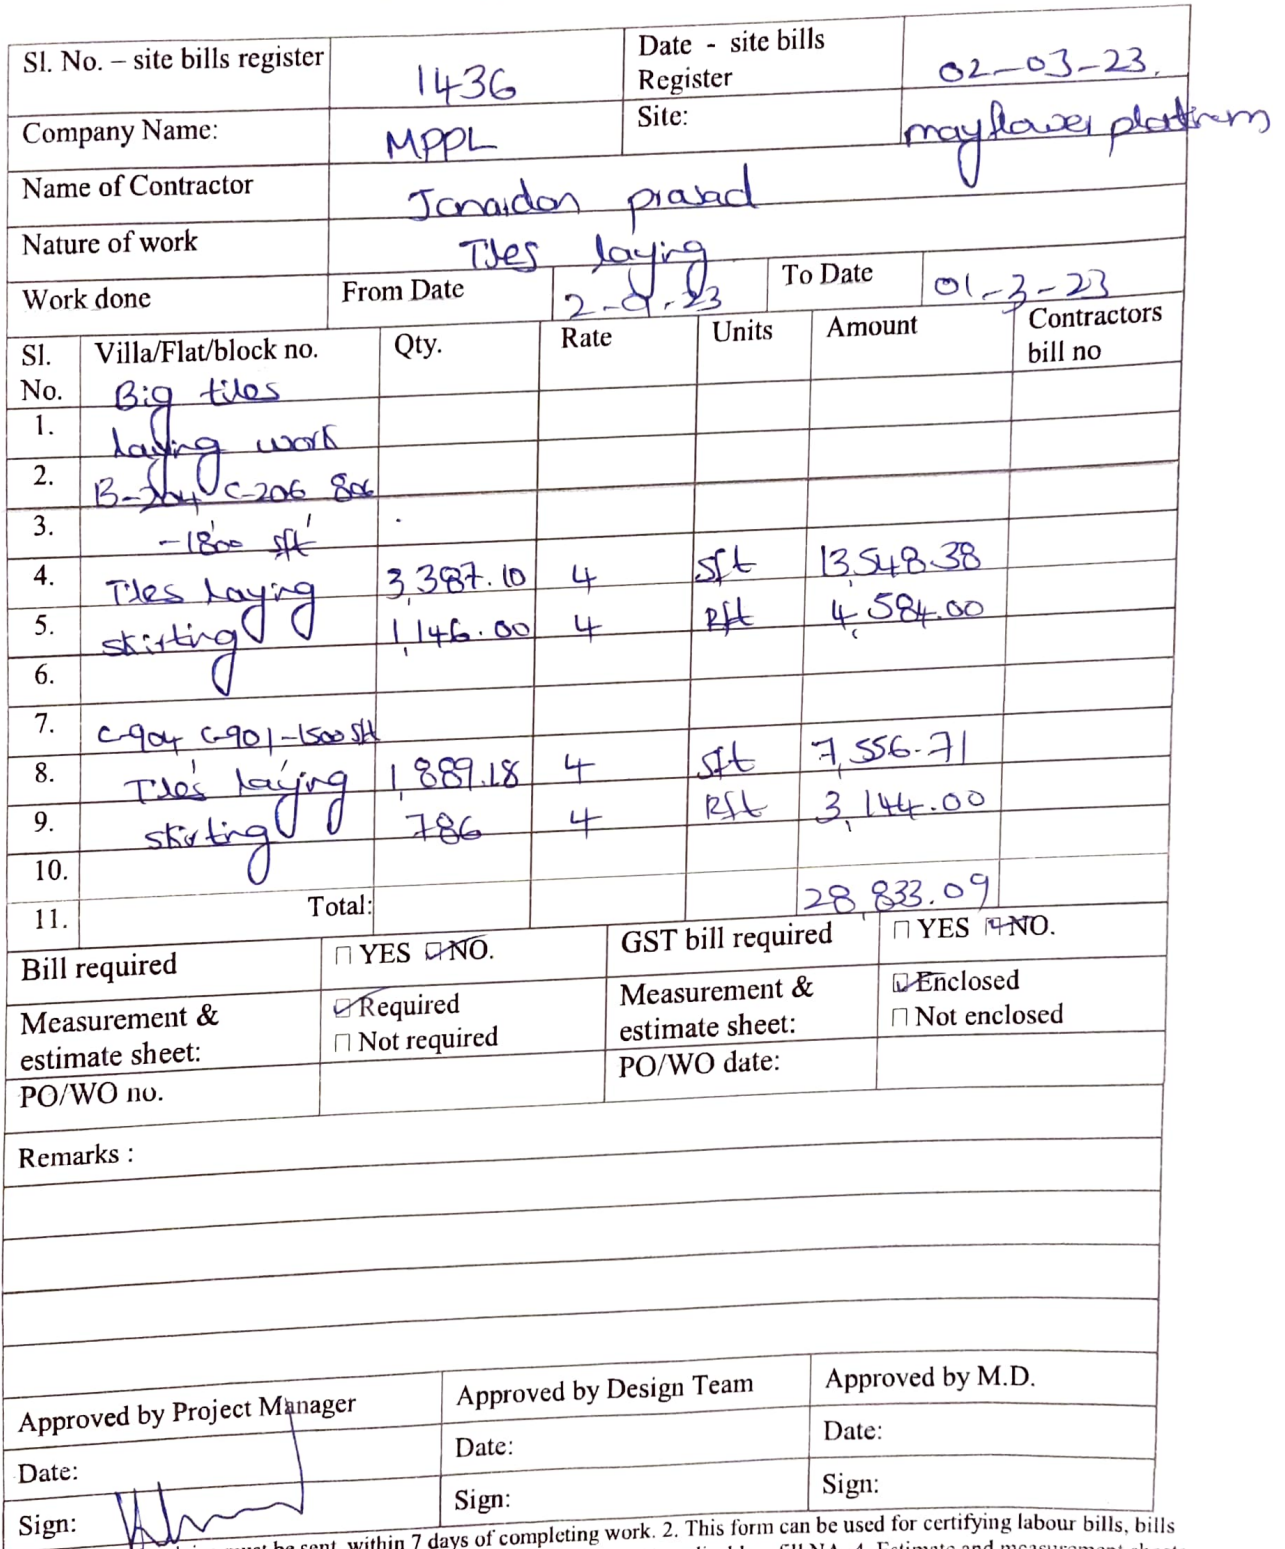 Sl. No. – site bills register 1436 Date - site bills Register 02-03-23.
Company Name: MPPL Site: mayflower platinum
Name of Contractor Janardan prasad
Nature of work Tiles laying
Work done From Date To Date 01-3-23
Sl. No. Villa/Flat/block no. Qty. Rate Units Amount Contractors bill no
Big tiles
1. laying work
2. B-204 C-206 806
3. -1800 sft
4. Tiles laying 3,387.10 4 sft 13,548.38
5. skirting 1,146.00 4 Rft 4,584.00
6.
7. C-904 C-901-1500 sft
8. Tiles laying 1,889.18 4 sft 7,556.71
9. skirting 786 4 Rft 3,144.00
10.
11. Total: 28,833.09
Bill required YES NO. GST bill required YES NO.
Measurement & estimate sheet: Required Not required Measurement & estimate sheet: Enclosed Not enclosed
PO/WO no. PO/WO date:
Remarks :
Approved by Project Manager Approved by Design Team Approved by M.D.
Date: Date: Date:
Sign: Sign: Sign:
within 7 days of completing work. 2. This form can be used for certifying labour bills, bills